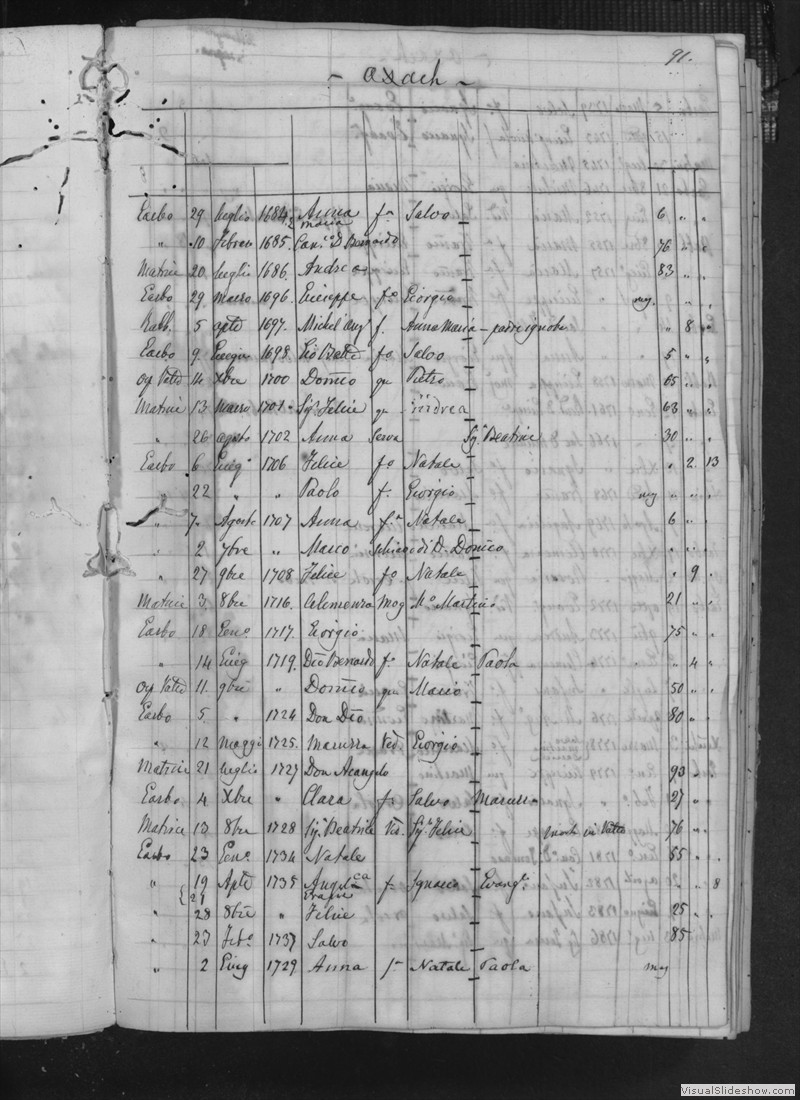 91.
- Axach -
Earbo 29 luglio 1684 Anna Maria fa Salvo 6 " "
" 10 Febraro 1685. Can.co D. Bernardo 76 " "
Matrice 20 luglio 1686. Andrea 83 " "
Earbo 29 marzo 1696. Giuseppe fo Giorgio my. " "
Rabb. 5 aple 1697. Michel'ang f. Anna Maria - padre ignoto " 8 "
Earbo 9 Giugn 1698 Gio Batta fo Salvo 5 " "
Osp Vatta 14 Xbre 1700 Domco qu Pietro 65 " "
Matrice 13 marzo 1701 Sigr Felice qu Andrea 63 " "
" 26 agosto 1702 Anna Serva Sig.a Beatrice 30 " "
Earbo 6 Giug. 1706 Felice fo Natale " 2 13
" 22 " " Paolo f. Giorgio my " "
" 7 Agosto 1707 Anna fa Natale 6 " "
" 2 7bre " Marco Schiavo di D. Domco " " "
" 27 9bre 1708 Felice fo Natale " 9 "
Matrice 3 8bre 1716. Clemenza mog Mo Martino 21 " "
Earbo 18 Geno 1717. Giorgio 75 " "
" 14 Giug 1719. Dto Bernardo fo Natale Paola " 4 "
Osp Vatta 11 9bre " Domco qu Marco 50 " "
Earbo 5 " 1724 Don Dto 80 " "
" 12 maggio 1725. Maruzza Ved. Giorgio
Matrice 21 luglio 1727 Don Arcangelo 93 " "
Earbo 4 Xbre " Clara fa Salvo Maruzza 27 " "
Matrice 13 8bre 1728 Siga Beatrice Ved. Sigr Felice morta in Vatta 76 " "
Earbo 23 Geno 1734 Natale 55 " "
" 19 Aple 1735 Angelica fa Ignazio Evanga " " 8
{21
" 28 8bre " Felice 25 " "
" 23 Febo 1737 Salvo 85 " "
" 2 Giug 1729 Anna fa Natale Paola my
VisualSlideshow.com